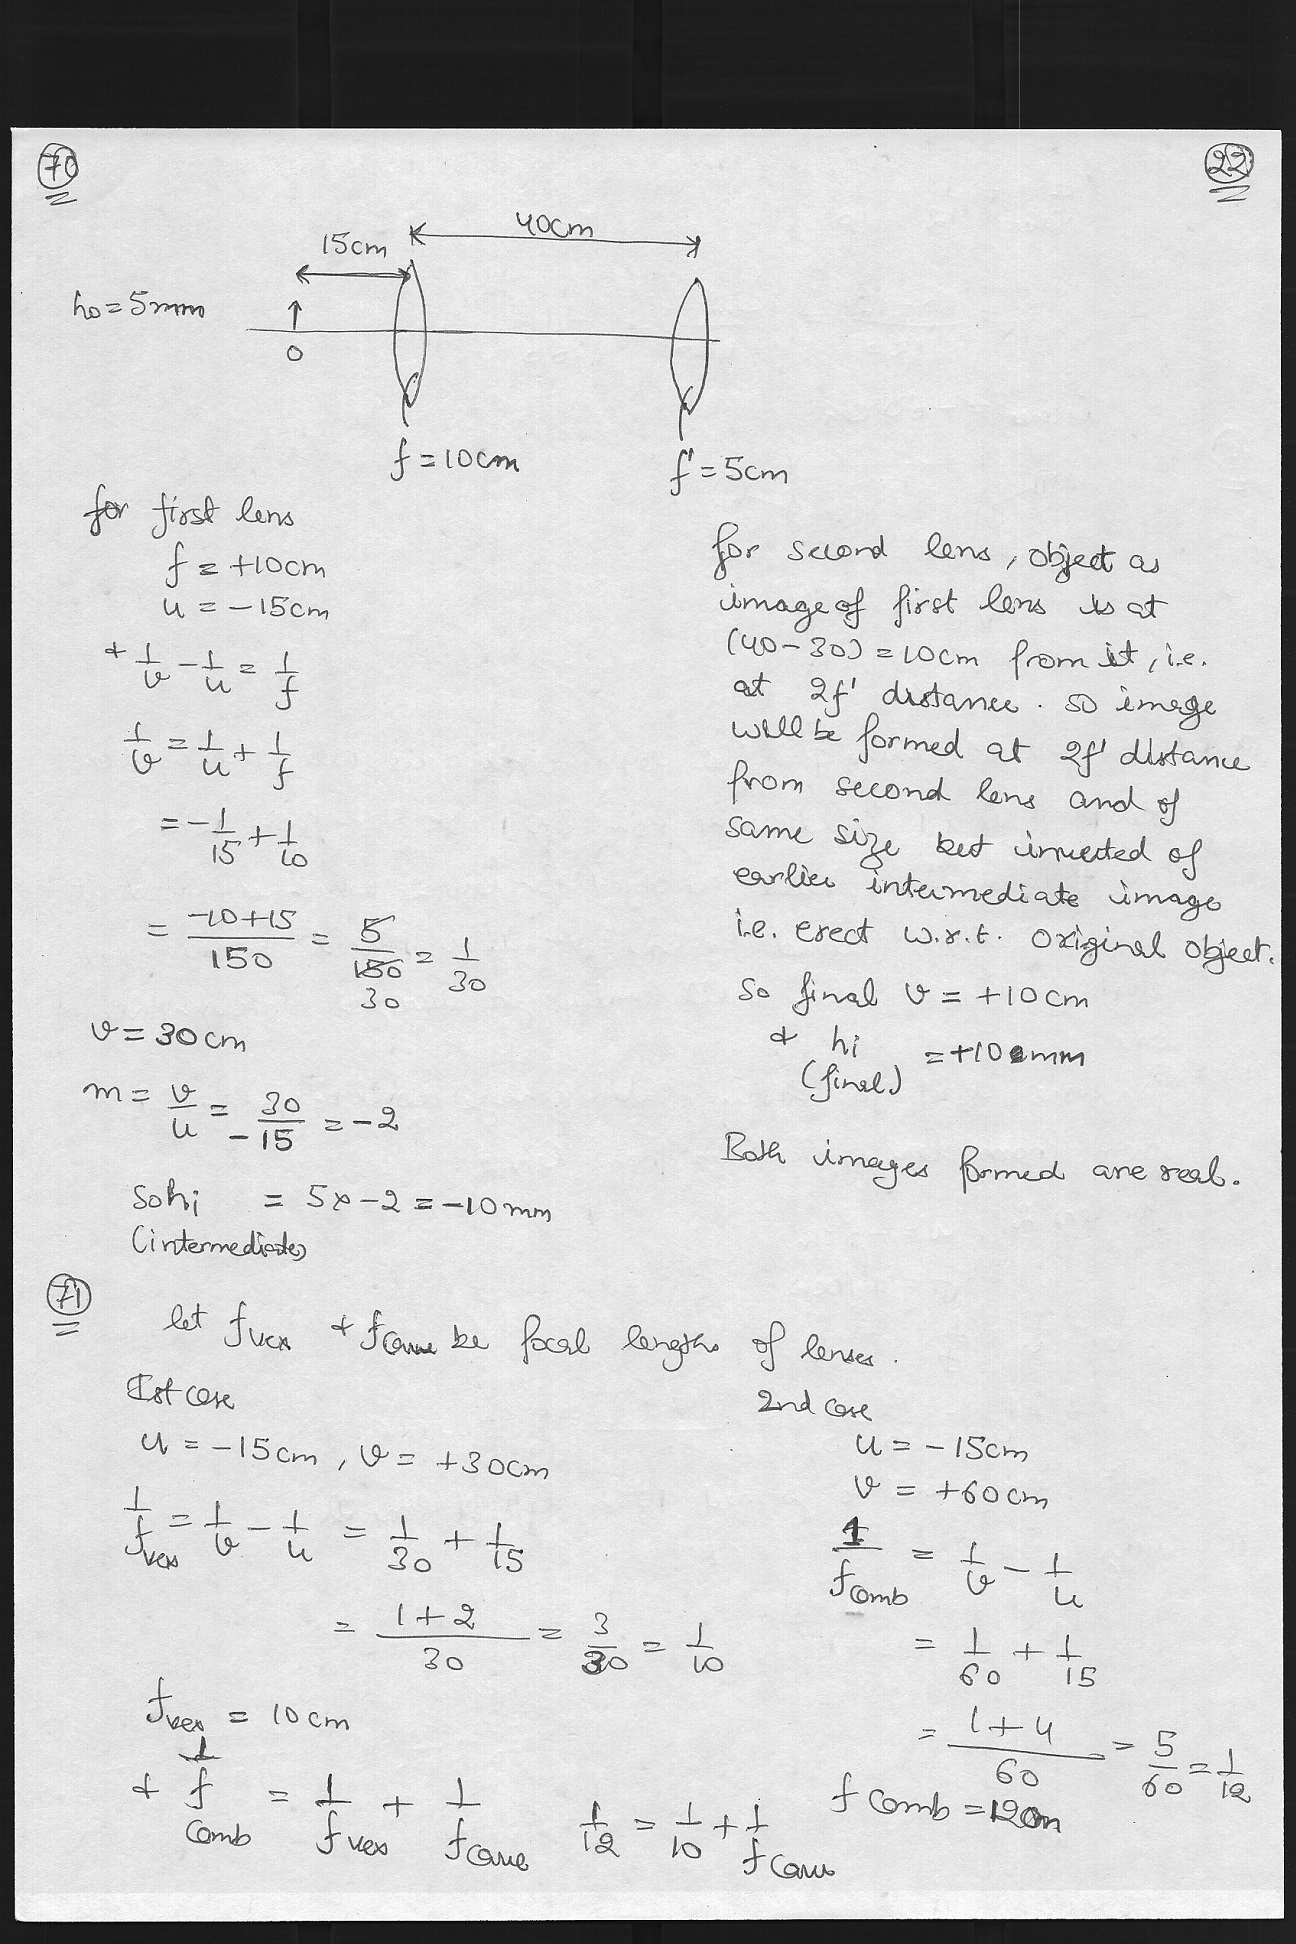 70
22
40cm
15cm
ho = 5mm
O
f = 10cm
f' = 5cm
for first lens
f = +10cm
u = -15cm
+ 1/v - 1/u = 1/f
1/v = 1/u + 1/f
= -1/15 + 1/10
= -10+15/150 = 5/150 = 1/30
30
v = 30cm
m = v/u = 30/-15 = -2
So hi = 5x-2 = -10mm
(intermediate)
for second lens, object as
image of first lens is at
(40-30) = 10cm from it, i.e.
at 2f' distance. so image
will be formed at 2f' distance
from second lens and of
same size but inverted of
earlier intermediate image
i.e. erect w.r.t. original object.
So final v = +10cm
& hi = +10mm
(final)
Both images formed are real.
71
let fvex & fcave be focal lengths of lenses.
Ist case
u = -15cm, v = +30cm
1/fvex = 1/v - 1/u = 1/30 + 1/15
= 1+2/30 = 3/30 = 1/10
fvex = 10cm
& 1/f comb = 1/fvex + 1/fcave
1/12 = 1/10 + 1/fcave
2nd case
u = -15cm
v = +60cm
1/fcomb = 1/v - 1/u
= 1/60 + 1/15
= 1+4/60 = 5/60 = 1/12
f comb = 12cm